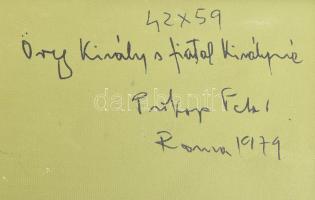 42x59
Öreg Király s fiatal Királyné
Prokop
Roma 1979
darabanth